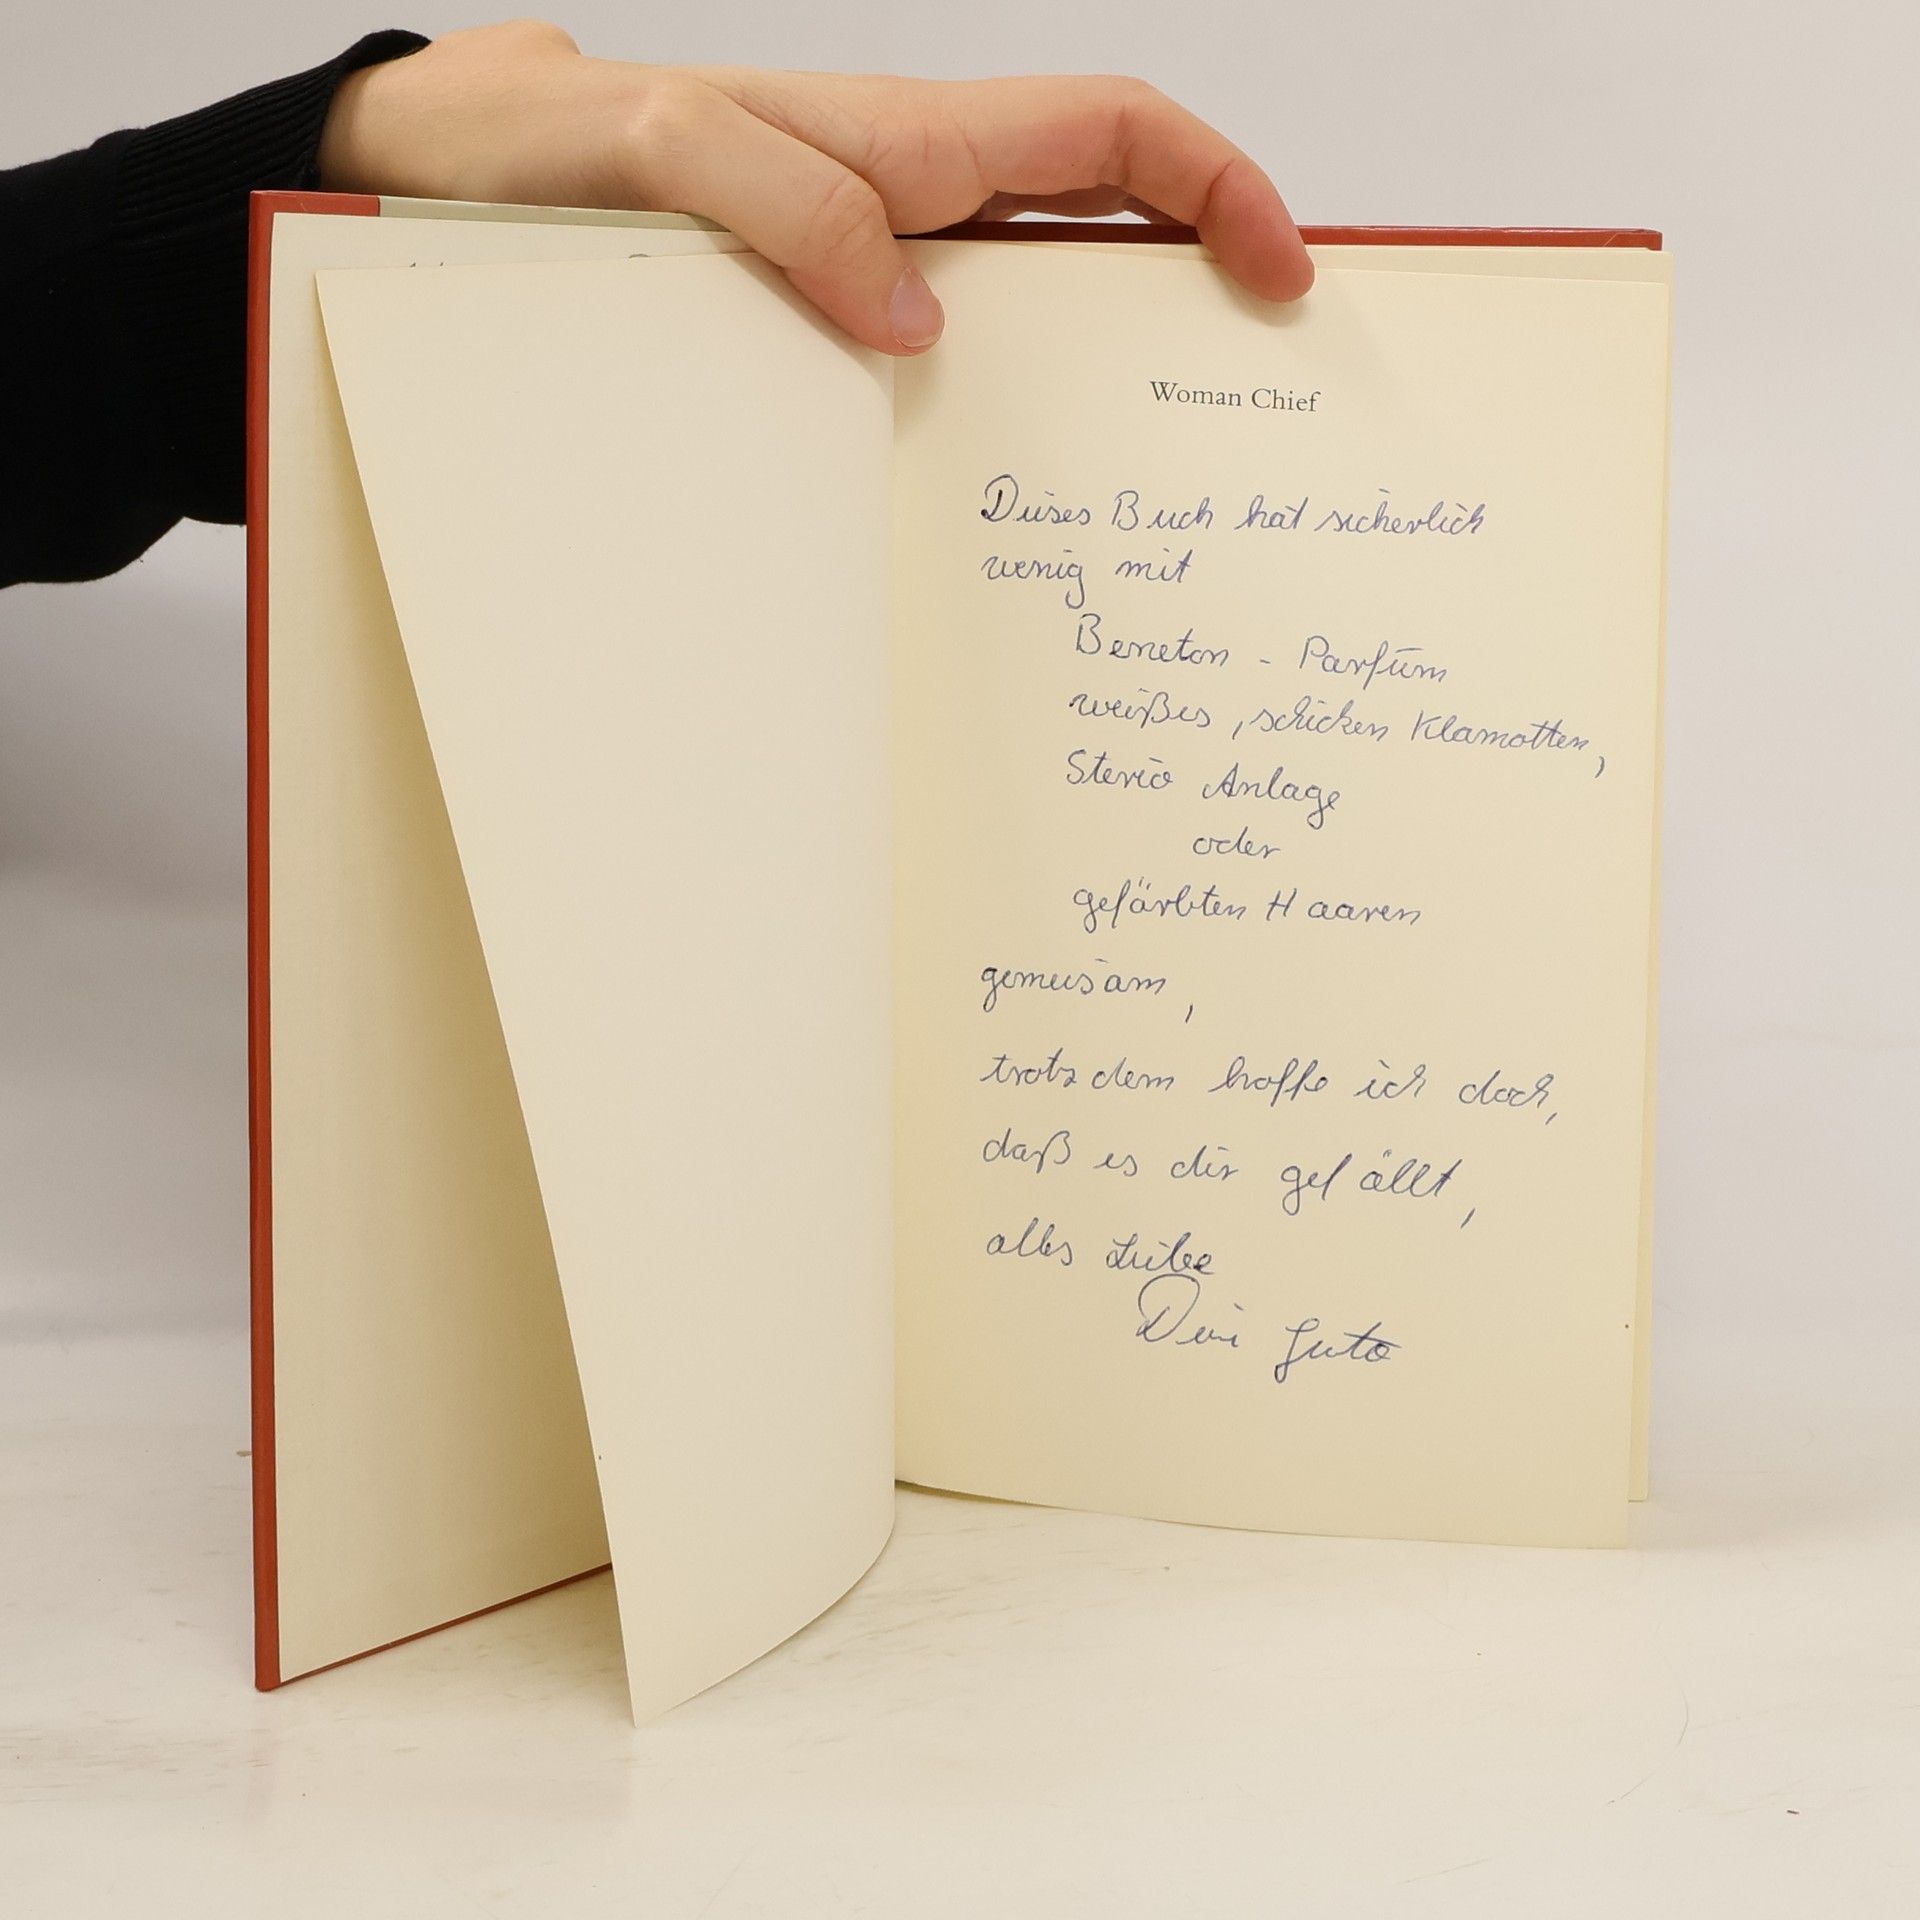 Woman Chief
Dieses Buch hat sicherlich
wenig mit
Beneton - Parfüm
weißes, schicken Klamotten,
Stereo Anlage
oder
gefärbten Haaren
gemeinsam,
trotzdem hoffe ich doch,
daß es dir gefällt,
alles Liebe
Dein